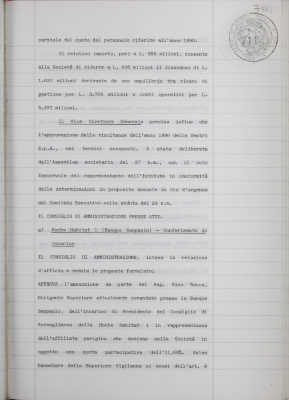 parziale del costo del personale riferito all'anno 1990.
Il relativo importo, pari a L. 996 milioni, consente
alla Società di ridurre a L. 636 milioni il disavanzo di L.
1.632 milioni derivante da uno squilibrio tra ricavi di
gestione per L. 3.705 milioni e costi operativi per L.
5.337 milioni.
Il Vice Direttore Generale avverte infine che
l'approvazione delle risultanze dell'anno 1990 della
S.p.A., nei termini suesposti, è stata deliberata
dall'Assemblea societaria del 27 u.s., con il voto
favorevole del rappresentante dell'Istituto in conformità
delle determinazioni in proposito assunte in via d'urgenza
dal Comitato Esecutivo nella seduta del 24 u.s.
IL CONSIGLIO DI AMMINISTRAZIONE PRENDE ATTO.
Habitat 1 (Banque Sanpaolo) - Conferimento di
IL CONSIGLIO DI AMMINISTRAZIONE, intesa la relazione
d'ufficio e vedute le proposte formulate;
APPROVA l'assunzione da parte del
Dirigente Superiore attualmente comandato presso la Banque
Sanpaolo, dell'incarico di Presidente del Consiglio di
Sorveglianza della Habitat 1 in rappresentanza
dell'affiliata parigina che detiene nella Società in
oggetto una quota partecipativa dell'11,